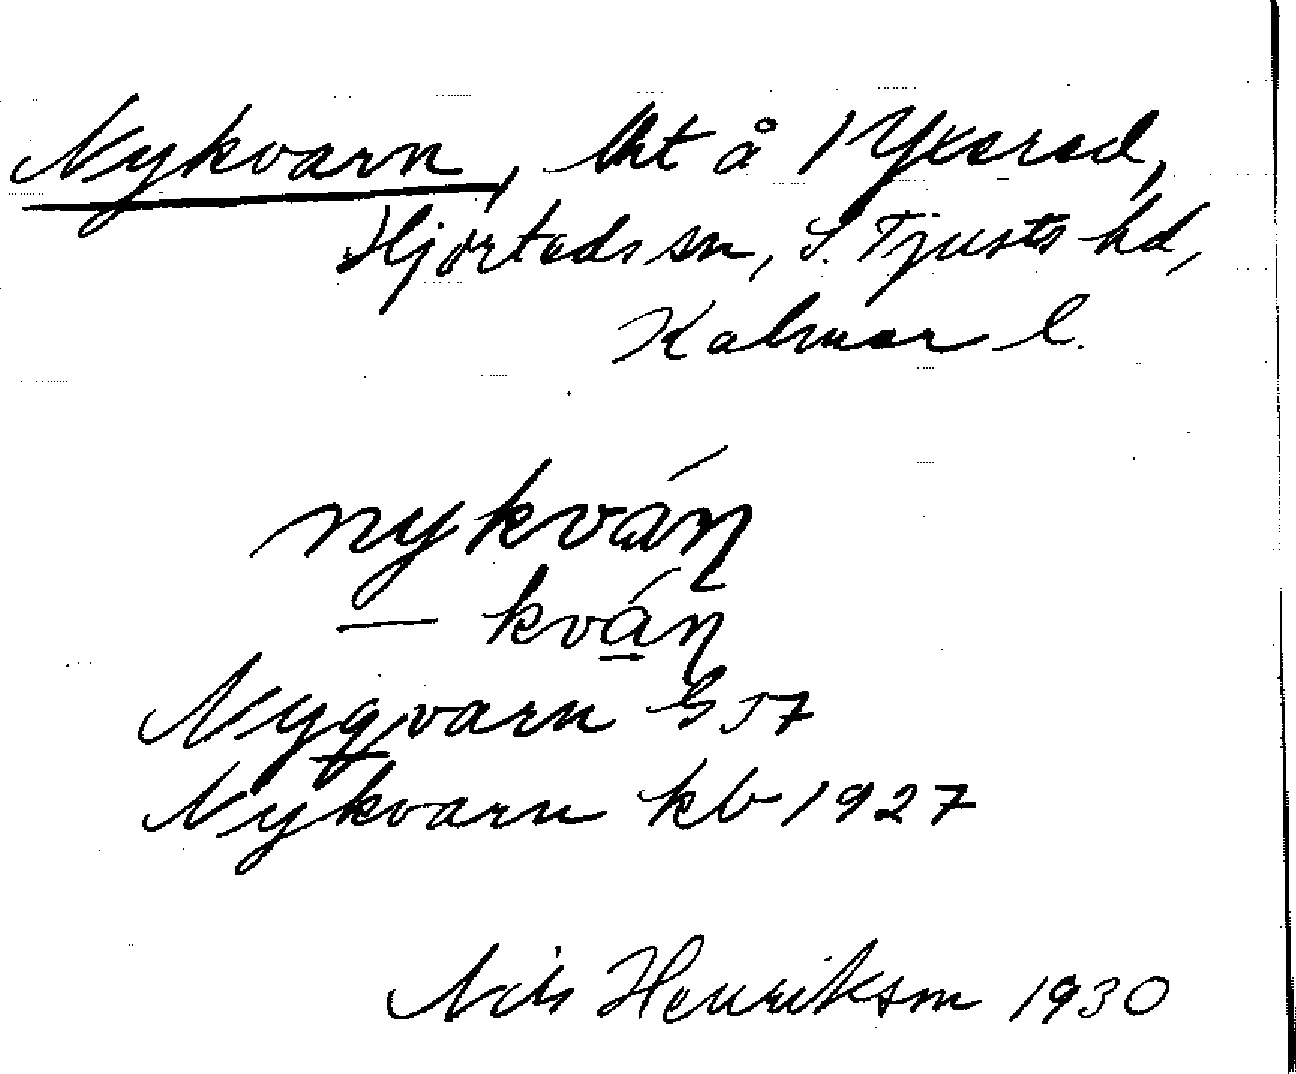 Nykvarn, lht å Yxered,
Hjorteds sn, S. Tjusts hd,
Kalmar l.
nykváɳ
— kvá̱ɳ
Nyqvarn G 57
Nykvarn kb 1927
Nils Henrikson 1930